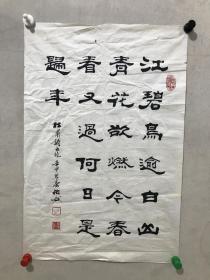 江碧鳥逾白山
青花欲燃今春
看又過何日是
歸年
杜甫